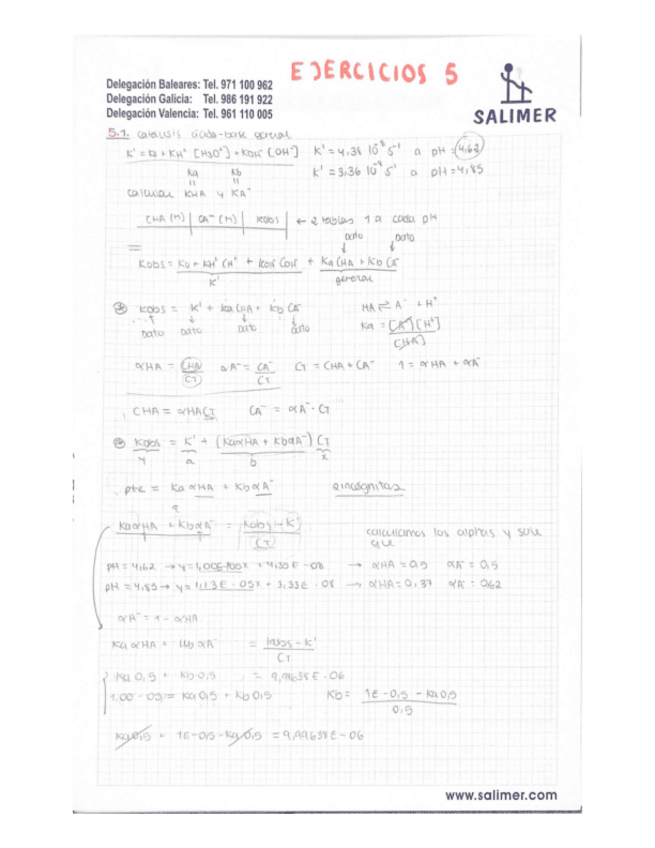 EJERCICIOS 5
Delegación Baleares: Tel. 971 100 962
Delegación Galicia: Tel. 986 191 922
Delegación Valencia: Tel. 961 110 005
SALIMER
5.1. Catálisis ácido-base general
K' = K0 + KH⁺ [H3O⁺] + KOH⁻ [OH⁻] K' = 4,38 10⁻⁸ s⁻¹ a pH = 4,62
K' = 3,36 10⁻⁸ s⁻¹ a pH = 4,85
Ka Kb
" "
calcular KHA y KA⁻
CHA (M) | CA⁻ (M) | Kobs | ← 2 tablas 1 a cada pH
Dato Dato
Kobs = K0 + KH⁺ CH⁺ + KOH⁻ COH⁻ + Ka CHA + Kb CA⁻
K' general
Kobs = K' + Ka CHA + Kb CA⁻ HA ⇌ A⁻ + H⁺
Dato Dato Dato Dato Ka = [A⁻][H⁺]
[HA]
αHA = CHA αA⁻ = CA⁻ CT = CHA + CA⁻ 1 = αHA + αA⁻
CT CT
CHA = αHA CT CA⁻ = αA⁻ · CT
Kobs = K' + (KaαHA + KbαA⁻) CT
y a b x
pte = Ka αHA + Kb αA⁻ 2 incógnitas
KaαHA + KbαA⁻ = Kobs - K'
CT
calculamos los alphas y sale que
pH = 4,62 → y = 1,00E-05x + 4,35E-08 → αHA = 0,5 αA⁻ = 0,5
pH = 4,85 → y = 1,13E-05x + 3,33E-08 → αHA = 0,37 αA⁻ = 0,62
αA⁻ = 1 - αHA
Ka αHA + Kb αA⁻ = Kobs - K'
CT
Ka 0,5 + Kb 0,5 = 9,99638E-06
1,00-05 = Ka 0,5 + Kb 0,5 Kb = 1E-0,5 - Ka 0,5
0,5
Ka0,5 + 1E-0,5 - Ka 0,5 = 9,99638E-06
www.salimer.com